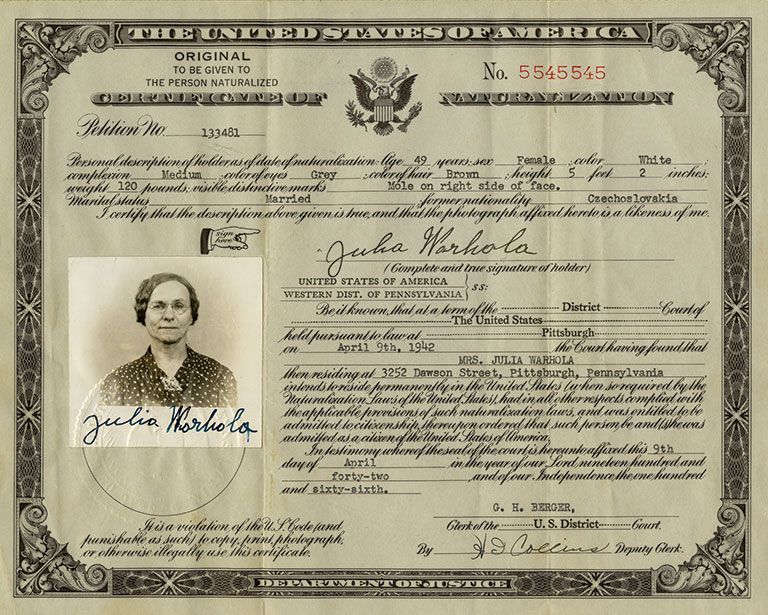 THE UNITED STATES OF AMERICA
ORIGINAL
TO BE GIVEN TO
THE PERSON NATURALIZED
No. 5545545
CERTIFICATE OF NATURALIZATION
Petition No. 133481
Personal description of holder as of date of naturalization: Age 49 years; sex Female; color White;
complexion Medium; color of eyes Grey; color of hair Brown; height 5 feet 2 inches;
weight 120 pounds; visible distinctive marks Mole on right side of face.
Marital status Married former nationality Czechoslovakia
I certify that the description above given is true, and that the photograph affixed hereto is a likeness of me.
sign here
Julia Warhola
(Complete and true signature of holder)
UNITED STATES OF AMERICA
WESTERN DIST. OF PENNSYLVANIA } ss:
Be it known, that at a term of the District Court of
The United States
held pursuant to law at Pittsburgh
on April 9th, 1942 the Court having found that
MRS. JULIA WARHOLA
then residing at 3252 Dawson Street, Pittsburgh, Pennsylvania
intends to reside permanently in the United States (when so required by the
Naturalization Laws of the United States), had in all other respects complied with
the applicable provisions of such naturalization laws, and was entitled to be
admitted to citizenship, thereupon ordered that such person be and (s)he was
admitted as a citizen of the United States of America.
In testimony whereof the seal of the court is hereunto affixed this 9th
day of April in the year of our Lord nineteen hundred and
forty-two and of our Independence the one hundred
and sixty-sixth.
Julia Warhola
G. H. BERGER,
Clerk of the U. S. District Court.
By H G Collins Deputy Clerk.
It is a violation of the U.S. Code (and
punishable as such) to copy, print, photograph,
or otherwise illegally use this certificate.
DEPARTMENT OF JUSTICE